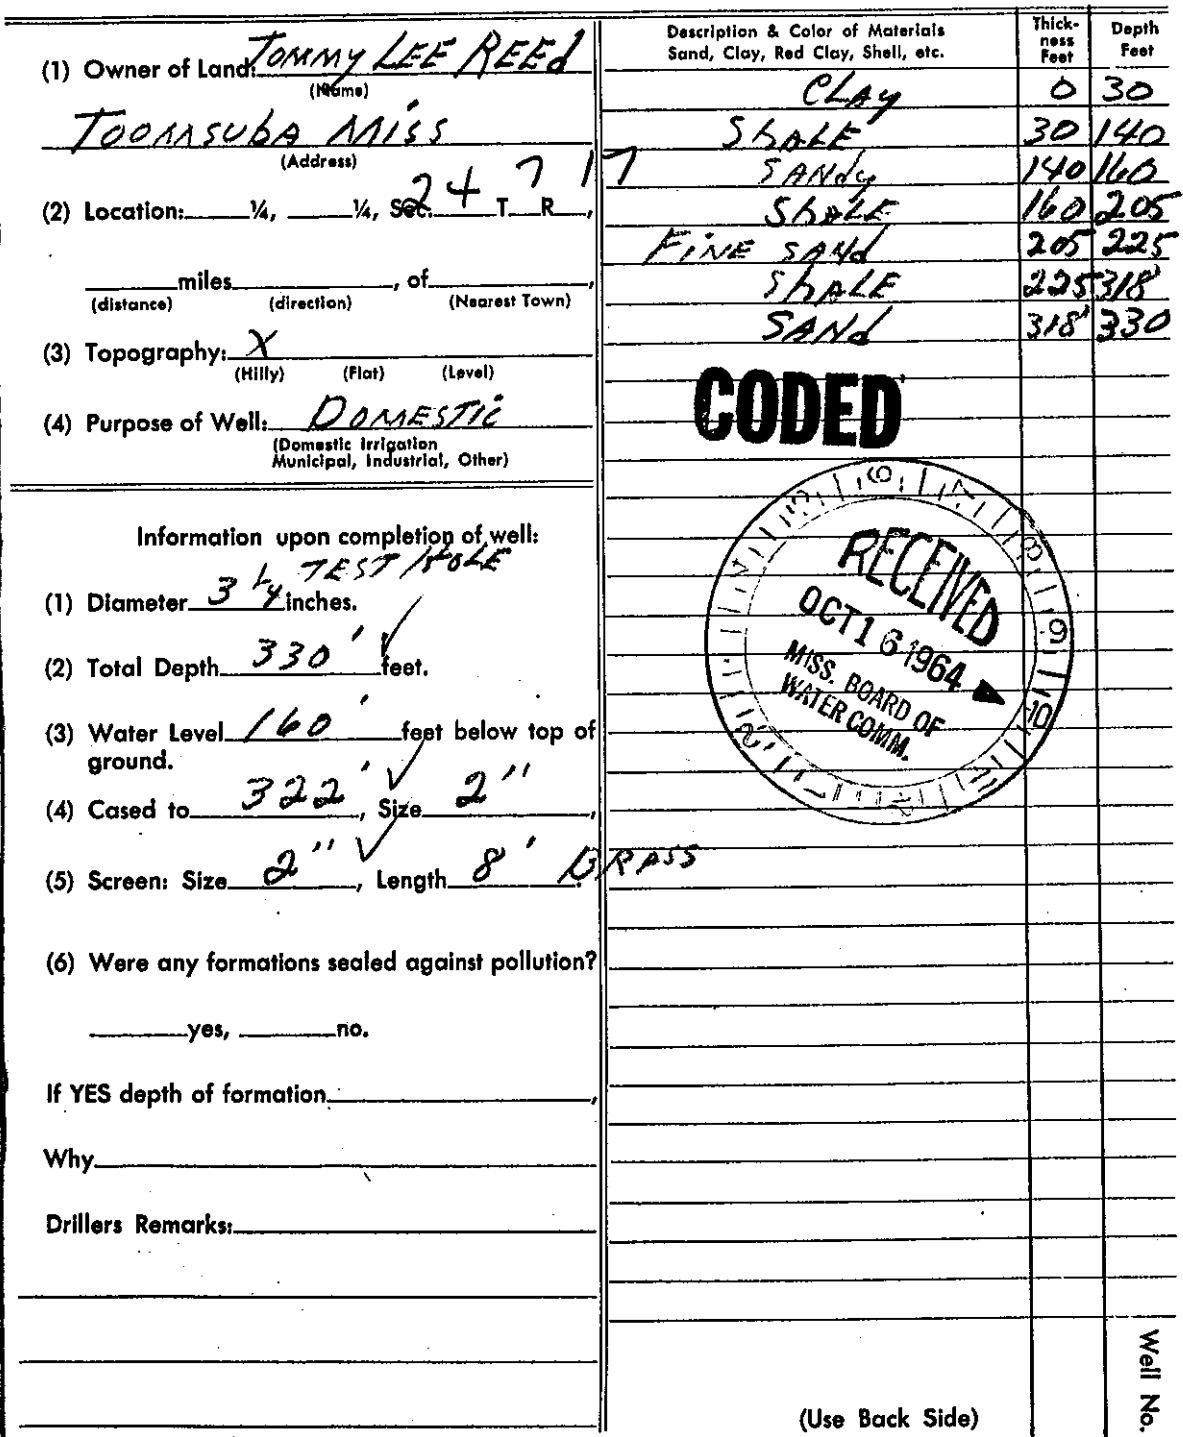 (1) Owner of Land: TOMMY LEE REEd
(Name)
TOOMSUBA MISS
(Address)
(2) Location: ____ ¼, ____ ¼, Sec. 24 T. 7 R. 17,
____ miles ____, of ____,
(distance) (direction) (Nearest Town)
(3) Topography: X
(Hilly) (Flat) (Level)
(4) Purpose of Well: DOMESTIC
(Domestic Irrigation
Municipal, Industrial, Other)
Information upon completion of well:
TEST HOLE
(1) Diameter 3 ¼ inches.
(2) Total Depth 330' feet.
(3) Water Level 160' feet below top of
ground.
(4) Cased to 322', Size 2",
(5) Screen: Size 2", Length 8' BRASS
(6) Were any formations sealed against pollution?
____ yes, ____ no.
If YES depth of formation ____,
Why
Drillers Remarks:
Description & Color of Materials Thick- Depth
Sand, Clay, Red Clay, Shell, etc. ness Feet
Feet
CLAy 0 30
ShALE 30 140
SANdy 140 160
ShALE 160 205
FINE SANd 205 225
ShALE 225 318'
SANd 318' 330
CODED
RECEIVED
OCT 16 1964
MISS. BOARD OF
WATER COMM.
6 7 8 9 10
(Use Back Side)
Well No.